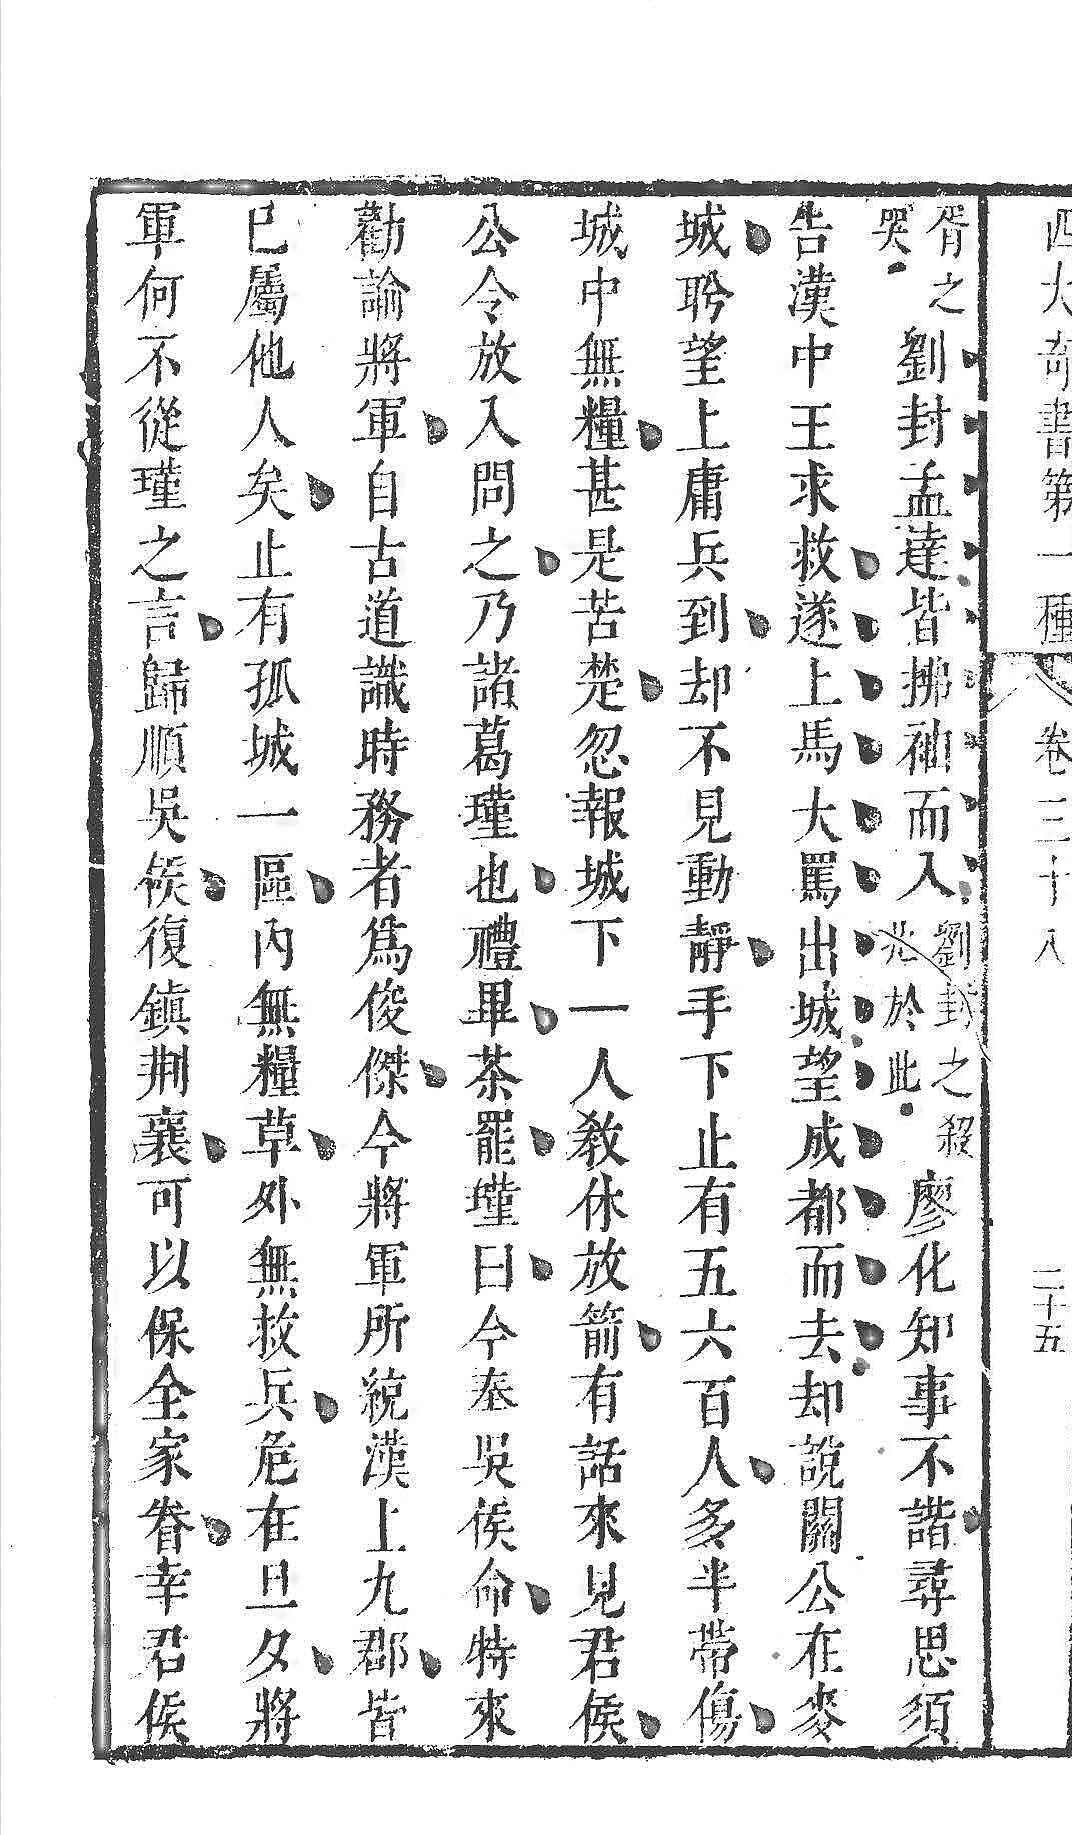 四大奇書第一種 卷三十八 二十五
胥之哭劉封孟達皆拂袖而入劉封之殺兆於此廖化知事不諧尋思須
告漢中王求救遂上馬大罵出城望成都而去却說關公在麥
城盻望上庸兵到却不見動靜手下止有五六百人多半帶傷
城中無糧甚是苦楚忽報城下一人教休放箭有話來見君侯
公令放入問之乃諸葛瑾也禮畢茶罷瑾曰今奉吳侯命特來
勸諭將軍自古道識時務者爲俊傑今將軍所統漢上九郡皆
已屬他人矣止有孤城一區內無糧草外無救兵危在旦夕將
軍何不從瑾之言歸順吳侯復鎮荆襄可以保全家眷幸君侯